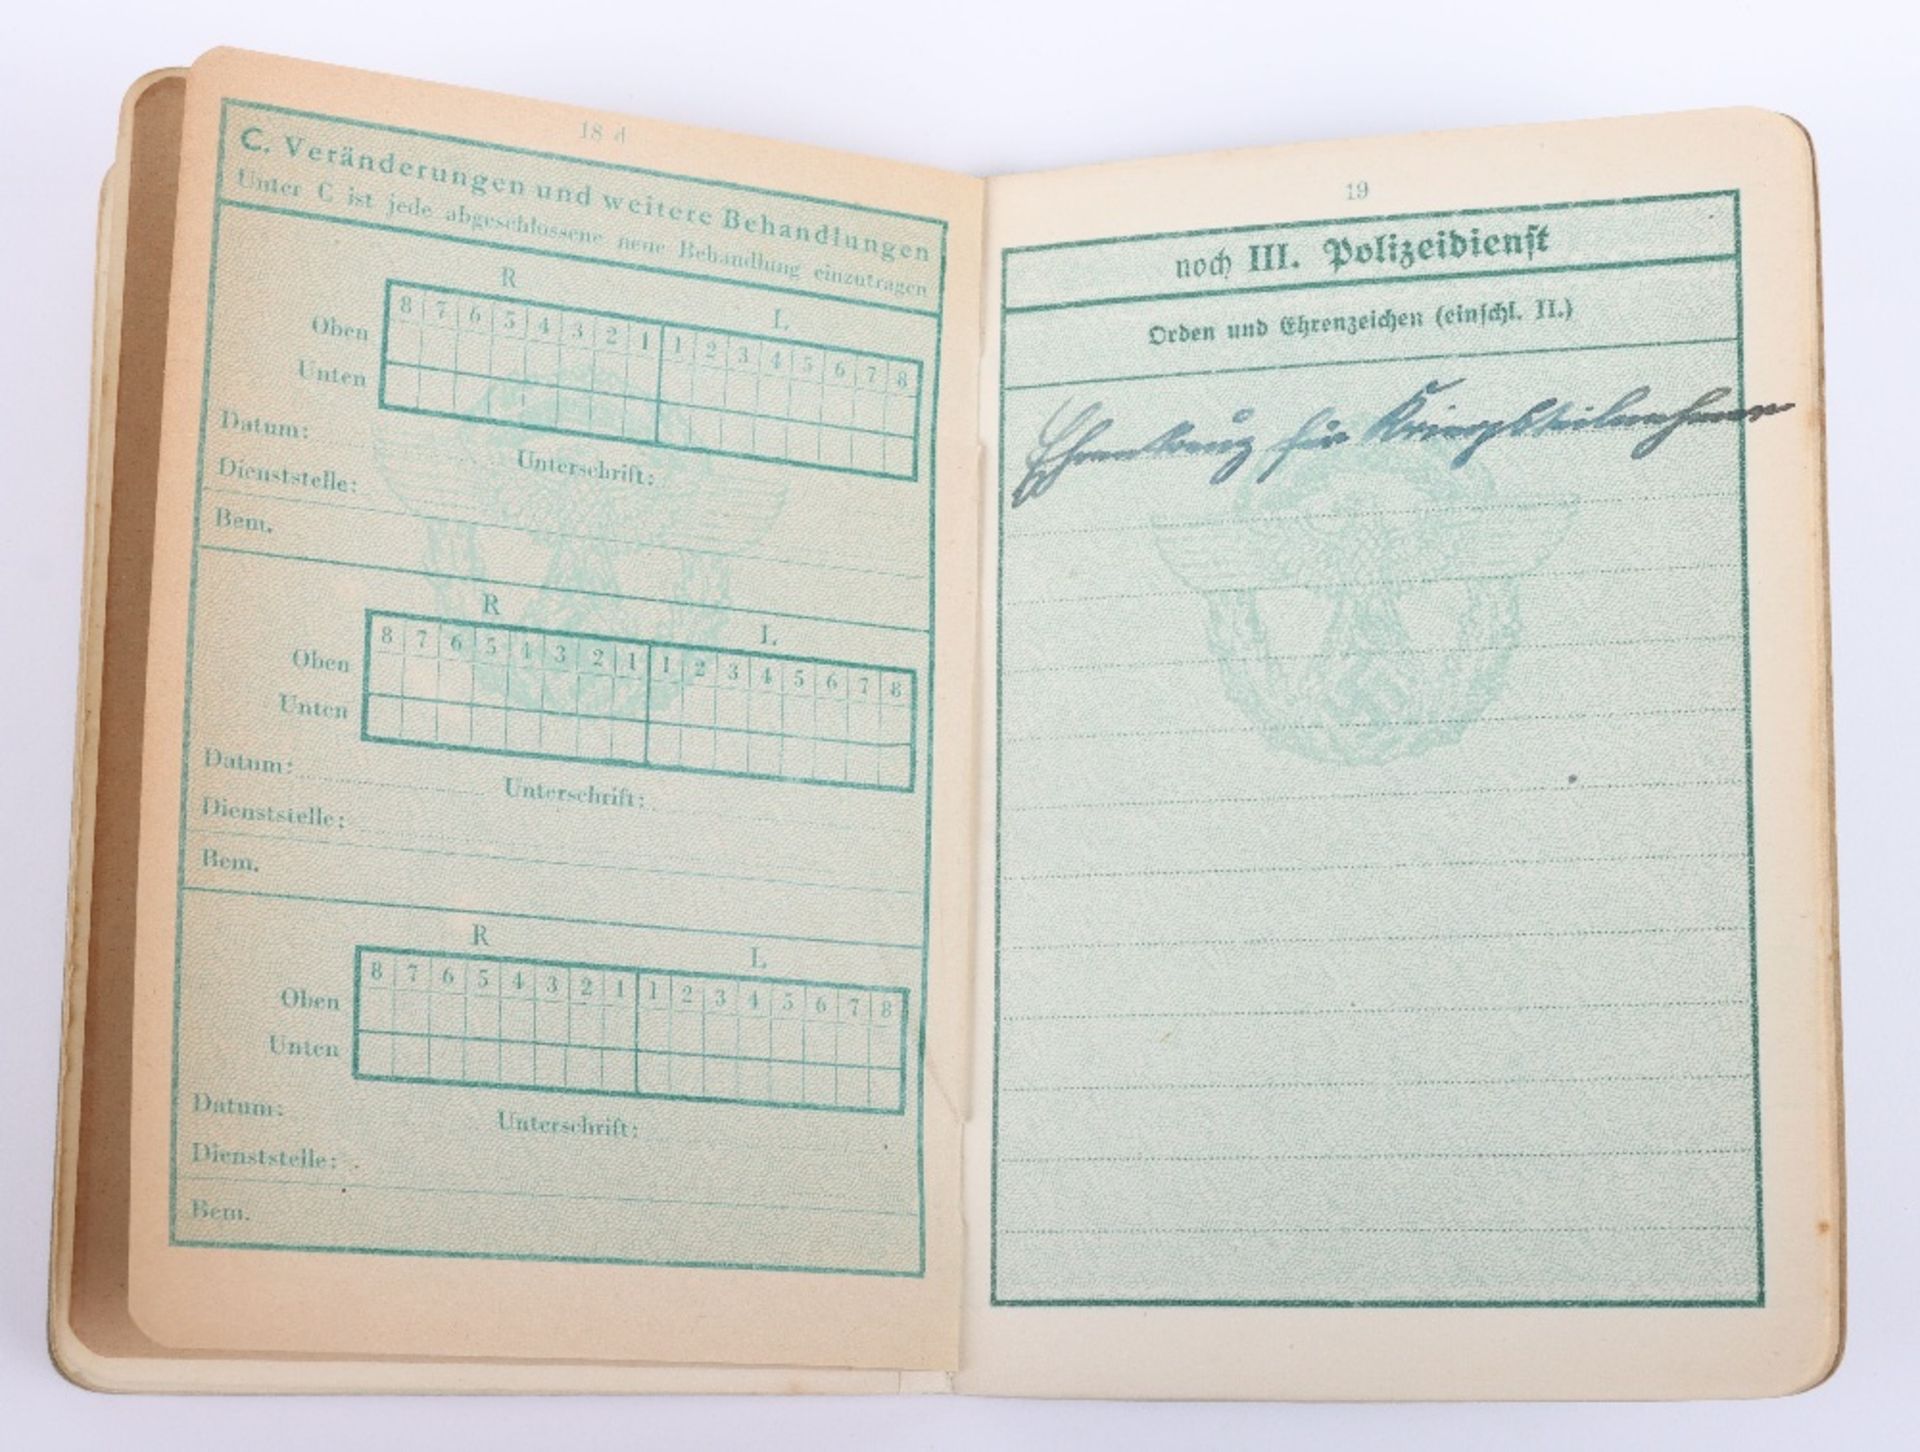 18 d
C. Veränderungen und weitere Behandlungen
Unter C ist jede abgeschlossene neue Behandlung einzutragen
R L
8 7 6 5 4 3 2 1 1 2 3 4 5 6 7 8
Oben
Unten
Datum: Unterschrift:
Dienststelle:
Bem.
R L
8 7 6 5 4 3 2 1 1 2 3 4 5 6 7 8
Oben
Unten
Datum: Unterschrift:
Dienststelle:
Bem.
R L
8 7 6 5 4 3 2 1 1 2 3 4 5 6 7 8
Oben
Unten
Datum: Unterschrift:
Dienststelle:
Bem.
19
noch III. Polizeidienst
Orden und Ehrenzeichen (einschl. II.)
Ehrenkreuz für Kriegsteilnehmer